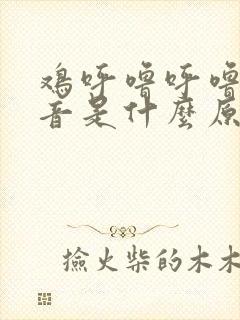 鸡呼噜呼噜
音是什麼原
撿火柴的木木